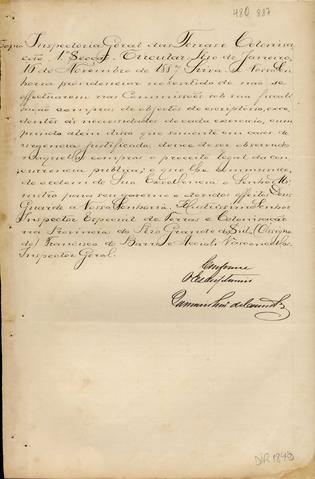 480 887
Copia Inspectoria Geral das Terras e Colonisa-
ção. 1ª Secção. Circular. Rio de Janeiro,
15 de Novembro de 1887. Sirva-se Vossa Se-
nhoria providenciar no sentido de não se
effectuarem nas Commissões sob sua fiscali-
sação compras de objectos de escriptorio, exce-
dentes ás necessidades de cada exercicio, cum-
prindo alem disso que somente em casos de
urgencia justificada, deixe de ser observado
naquellas compras o preceito legal da con-
currencia publica; o que lhe communico,
de ordem de Sua Excellencia o Senhor Mi-
nistro para seu governo e devidos effeitos. Deus
Guarde a Vossa Senhoria. Illustrissimo Senhor
Inspector Especial de Terras e Colonisação
na Provincia do Rio Grande do Sul. (Assigna-
do) Francisco de Barros e Accioli Vasconcellos.
Inspector Geral.
Conforme
O Escripturario
DIR 1849